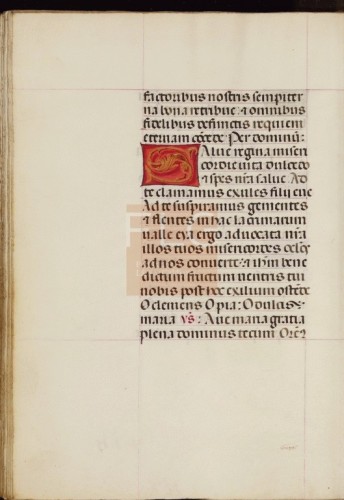 factoribus nostris sempiter
na bona retribue: & omnibus
fidelibus defunctis requiem
eternam cõcede. Per dominũ:
Salue regina miseri
cordie vita dulcedo
& spes nr̃a salue. Ad
te clamamus exules filii eue
Ad te suspiramus gementes
& flentes in hac lacrimarum
ualle eya ergo aduocata nr̃a
illos tuos misericordes oculos
ad nos conuerte: & ihm̃ bene
dictum fructum uentris tui
nobis post hoc exilium ostẽde
O clemens O pia: O dulcis
maria vs̃: Aue maria gratia
plena dominus tecum